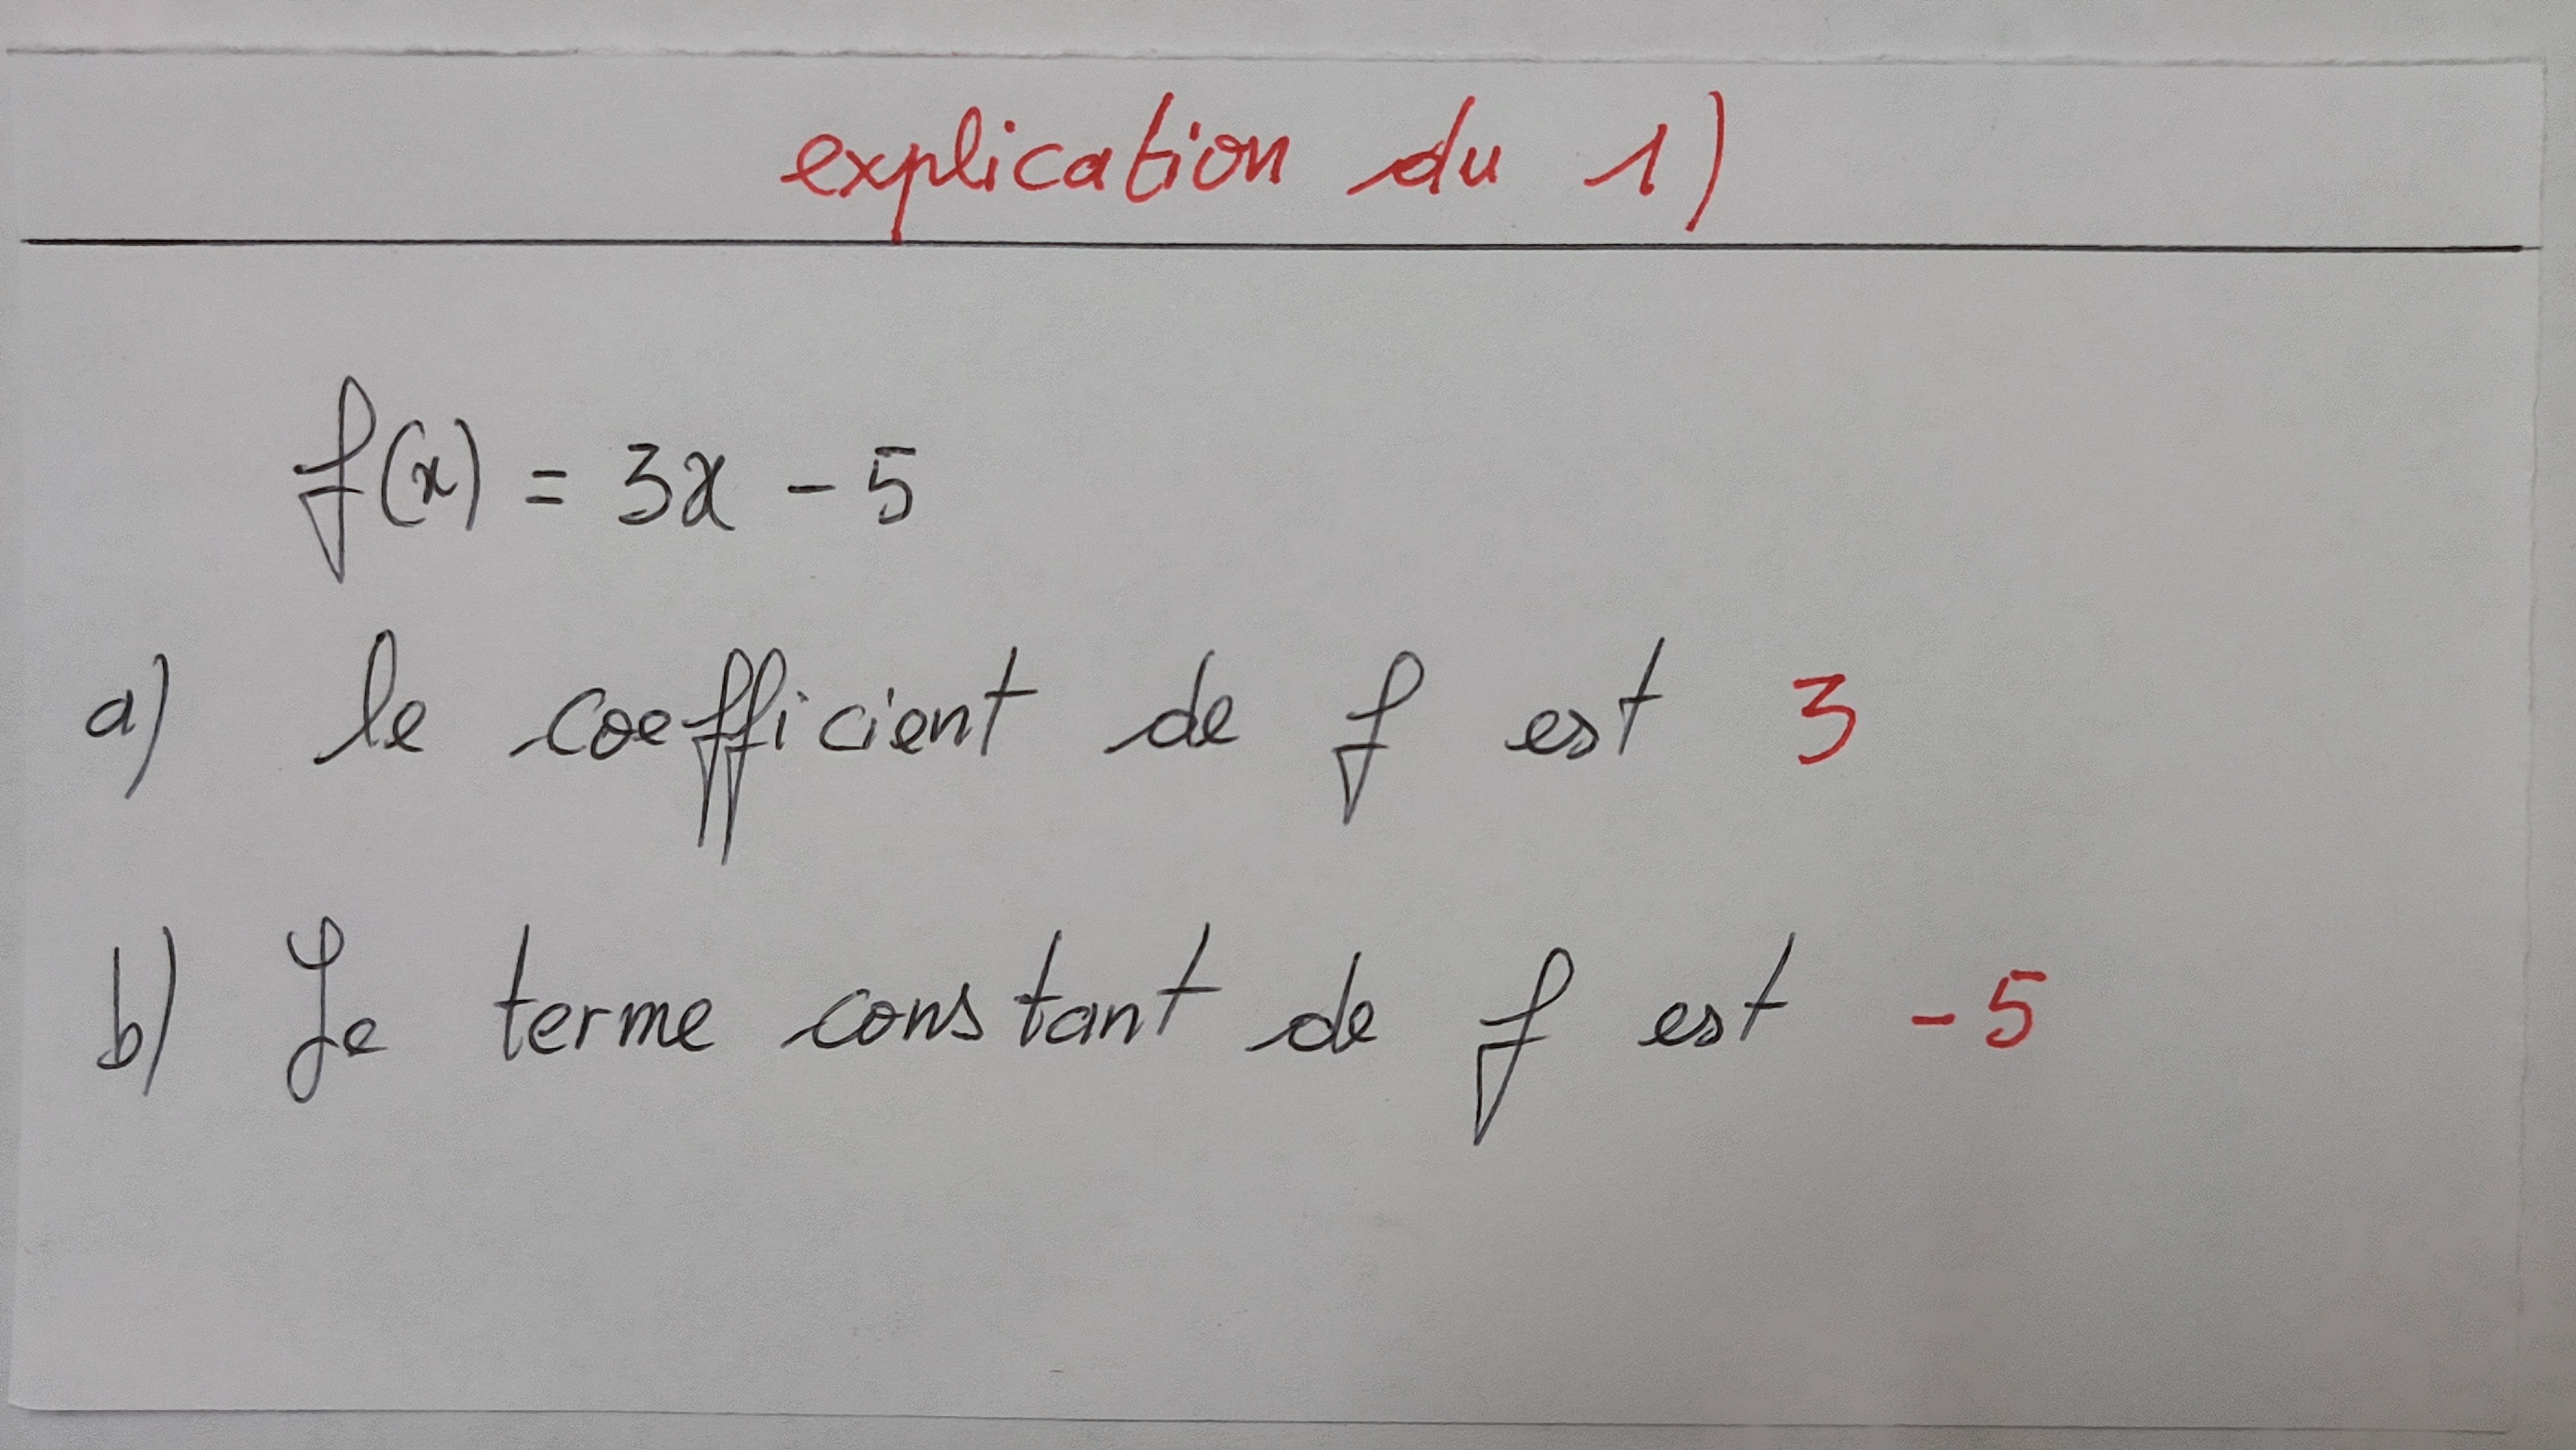 explication du 1)
f(x) = 3x - 5
a) le coefficient de f est 3
b) Le terme constant de f est -5